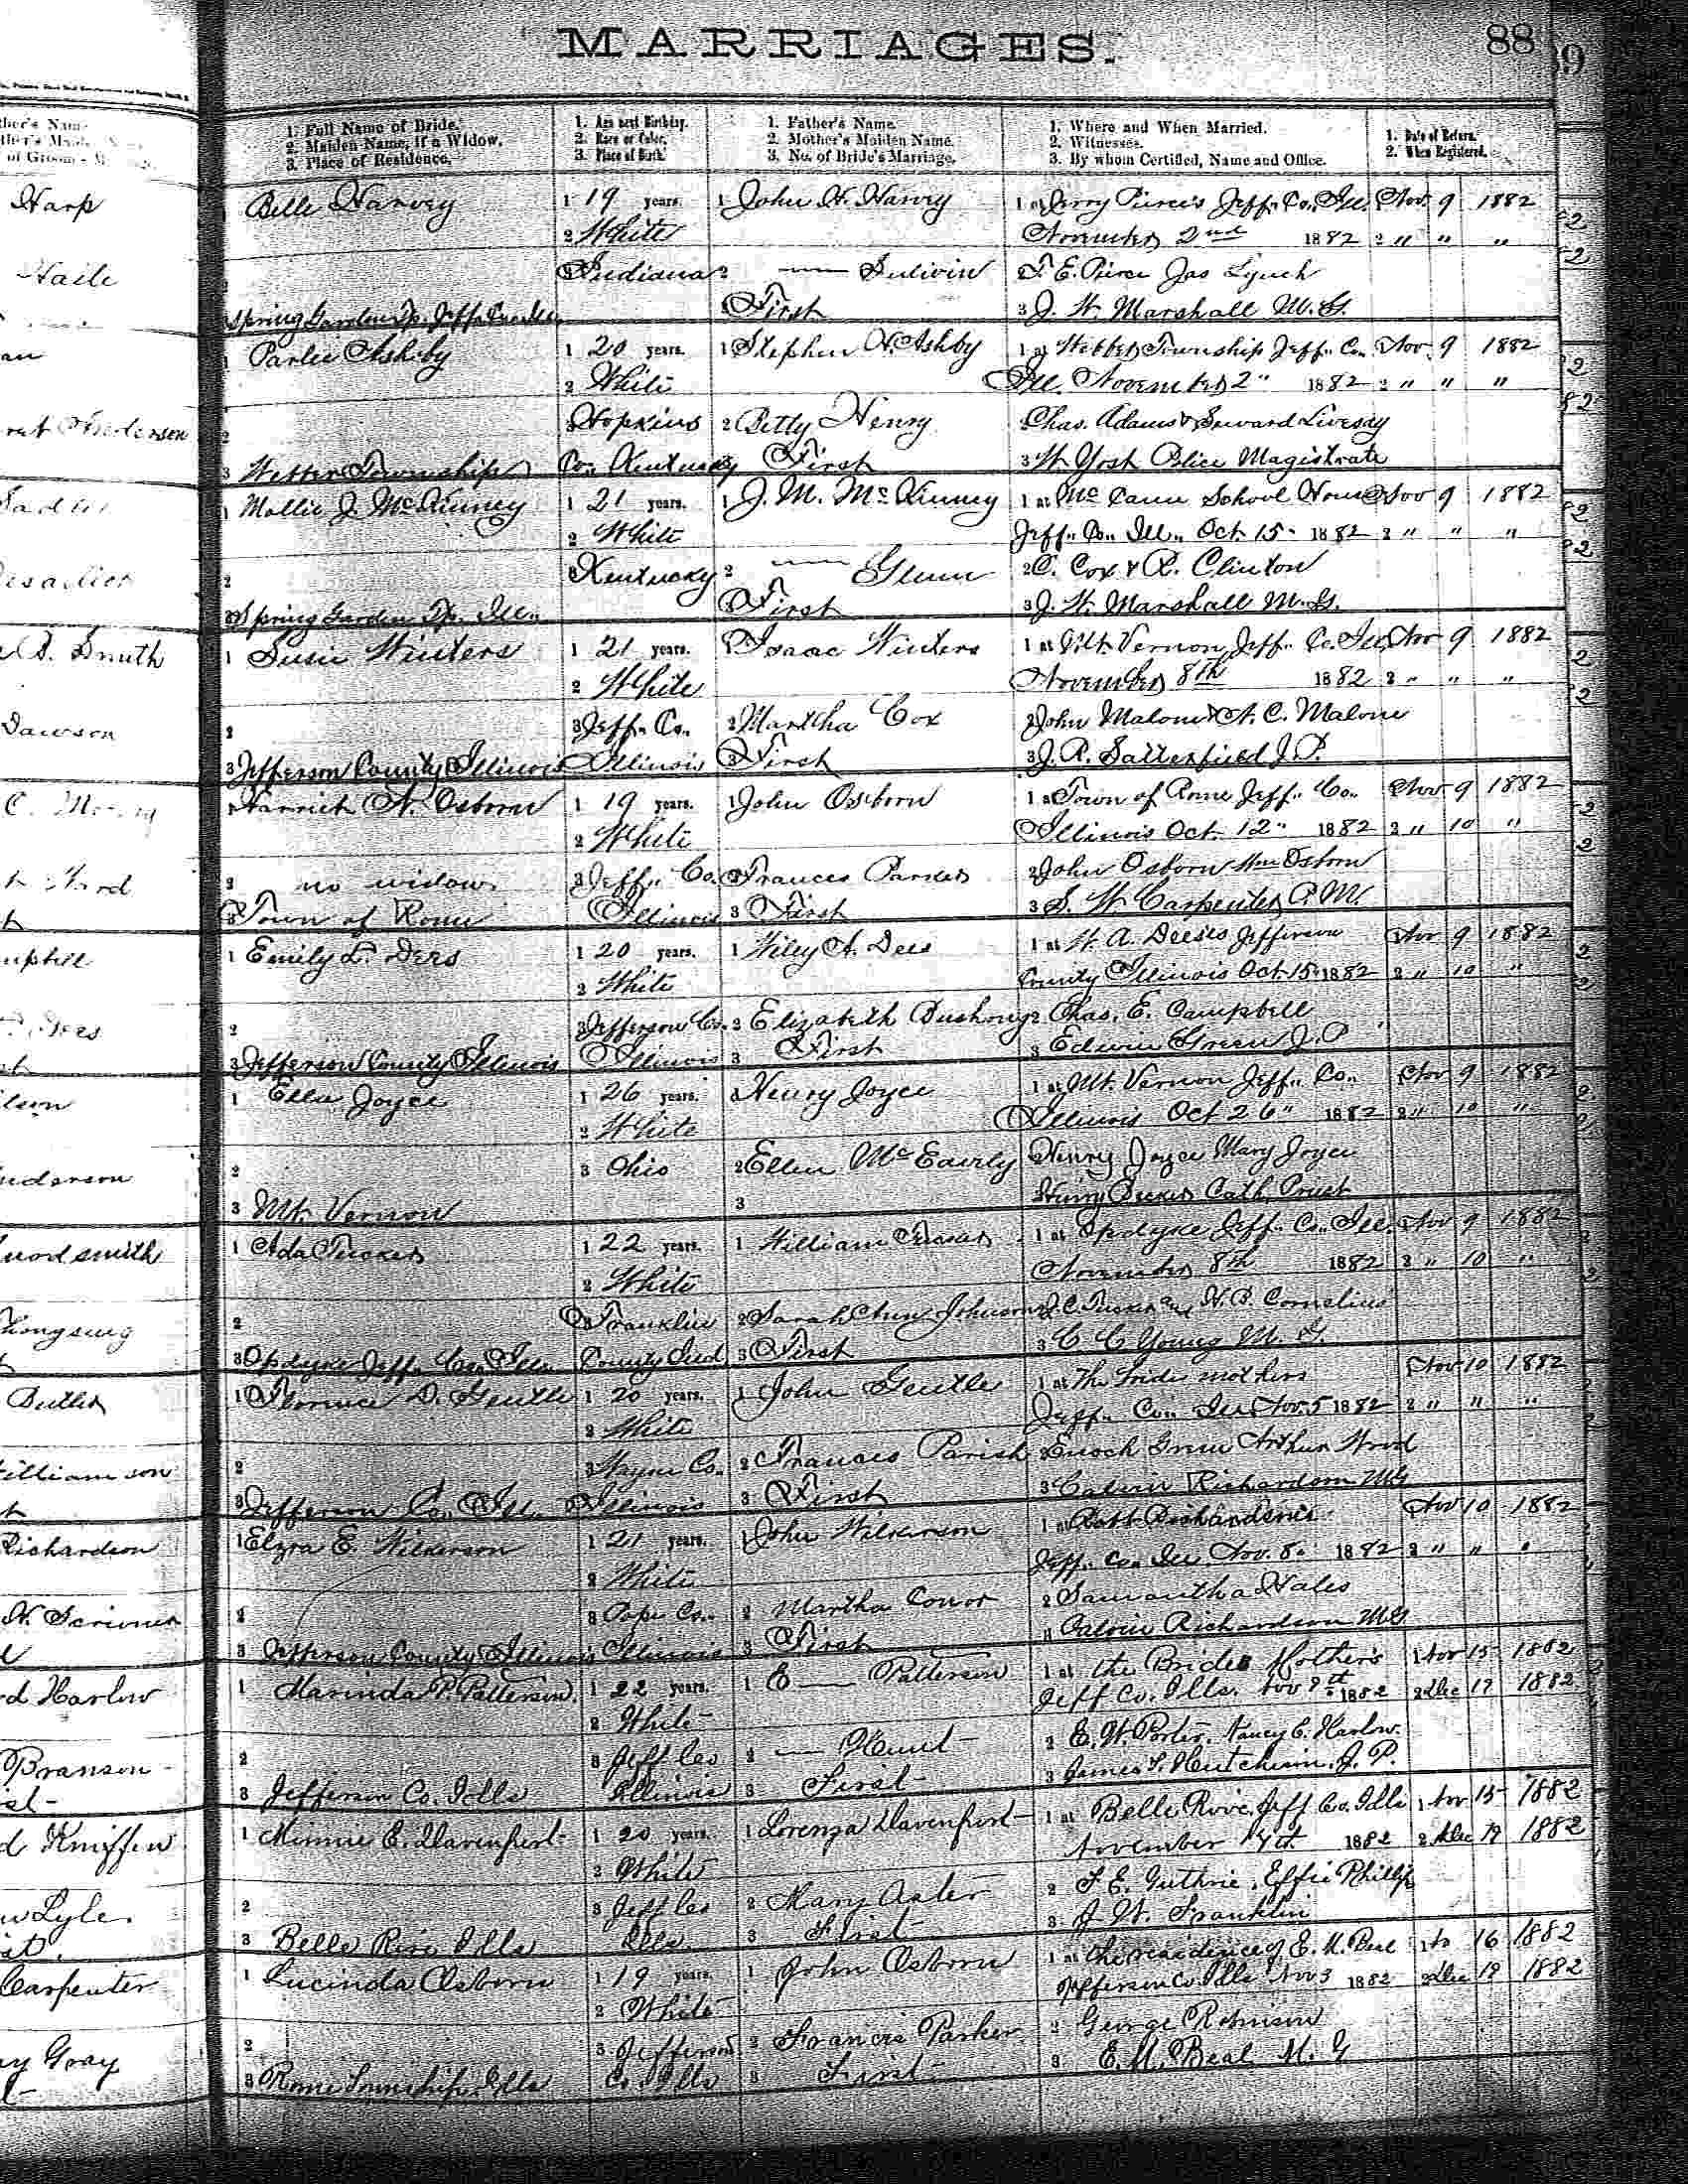 MARRIAGES.
88
1. Full Name of Bride.
2. Maiden Name, If a Widow.
3. Place of Residence.
1. Age next Birthday.
2. Race or Color.
3. Place of Birth.
1. Father's Name.
2. Mother's Maiden Name.
3. No. of Bride's Marriage.
1. Where and When Married.
2. Witnesses.
3. By whom Certified, Name and Office.
1. Date of Return.
2. When Registered.
Harp
1 Belle Harvey 1 19 years. 1 John H. Harvey 1 at Jerry Pierce's Jeff. Co., Ill. Nov. 9 1882
2 White November 2nd 1882 2 " " "
Haile
2 3 Indiana 2 — Sulivin 2 T. E. Pierce Jas Lynch
3 Spring Garden Tp. Jeff. First 3 J. W. Marshall M. G.
1 Parlie Ashby 1 20 years. 1 Stephen N. Ashby 1 at Webber Township Jeff. Co. Nov. 9 1882
2 White Ill. November 2" 1882 2 " " "
Anderson
2 3 Hopkins 2 Betty Henry 2 Chas. Adams & Seward Livesay
3 Webber Township Co. Kentucky First 3 W Yost Police Magistrate
1 Mollie J. McKinney 1 21 years. 1 J. M. McKinney 1 at McCann School House Nov 9 1882
2 White Jeff. Co. Ill. Oct. 15 - 1882 2 " " "
2 3 Kentucky 2 — Glenn 2 C. Cox & R. Clinton
3 Spring Garden Tp. Ill. First 3 J. W. Marshall M. G.
Smith
1 Susie Winters 1 21 years. 1 Isaac Winters 1 at Mt. Vernon Jeff. Co. Ill. Nov 9 1882
2 White November 8th 1882 2 " " "
Dawson
2 3 Jeff. Co. 2 Martha Cox 2 John Malone & A. C. Malone
3 Jefferson County Illinois Illinois 3 First 3 J. R. Satterfield J. P.
1 Harriet A. Osborn 1 19 years. 1 John Osborn 1 at Town of Rome Jeff. Co. Nov 9 1882
2 White Illinois Oct. 12" 1882 2 " 10 "
2 no widow 3 Jeff. Co. 2 Frances Parker 2 John Osborn Wm Osborn
3 Town of Rome Illinois 3 First 3 S. W. Carpenter P. M.
1 Emily L. Dees 1 20 years. 1 Wiley A. Dees 1 at W. A. Dees's Jefferson Nov 9 1882
2 White County Illinois Oct. 15 1882 2 " 10 "
Dees
2 3 Jefferson Co. 2 Elizabeth Dushong 2 Chas. E. Campbell
3 Jefferson County Illinois Illinois 3 First 3 Edwin Green J. P.
1 Ella Joyce 1 26 years. 1 Henry Joyce 1 at Mt. Vernon Jeff. Co. Nov 9 1882
2 White Illinois Oct 26" 1882 2 " 10 "
2 3 Ohio 2 Ellen McEaverly Henry Joyce Mary Joyce
3 Mt. Vernon 3 Cath. Priest
1 Ada Tucker 1 22 years. 1 William Tucker 1 at Opdyke Jeff. Co. Ill. Nov 9 1882
2 White November 8th 1882 2 " 10 "
2 3 Franklin 2 Sarah Ann Johnson 2 J. C. Tucker and H. B. Cornelius
3 Opdyke Jeff. Co. Ill. County Ind 3 First 3 C C Young M. G.
Butler
1 Florence D. Gentle 1 20 years. 1 John Gentle 1 at The brides mothers Nov 10 1882
2 White Jeff. Co. Ill. Nov. 5 1882 2 " " "
Williamson
2 3 Wayne Co. 2 Frances Parish 2 Enoch Green Arthur Wood
3 Jefferson Co. Ill. Illinois 3 First 3 Calvin Richardson MG
Richardson
1 Elzra E. Wilkerson 1 21 years. 1 John Wilkerson 1 at Robt Richardson's Nov 10 1882
2 White Jeff. Co. Ill Nov. 8. 1882 2 " " "
2 3 Pope Co. 2 Martha Conor 2 Samantha Hales
3 Jefferson County Illinois Illinois 3 First 3 Calvin Richardson MG
Harlow
1 Marinda P. Patterson 1 22 years. 1 E — Patterson 1 at the Brides Mother's 1 Nov 15 1882
2 White Jeff Co. Ills. Nov 9th 1882 2 Dec 19 1882
Branson
2 3 Jeff Co 2 — Hunt 2 E. W. Porter. Nancy C. Harlow.
3 Jefferson Co. Ills Illinois 3 First 3 James T. Hutchison. J. P.
Kniffen
1 Minnie E. Davenport 1 20 years. 1 Lorenza Davenport 1 at Belle Rive, Jeff Co. Ills 1 Nov 15 1882
2 White November 14th 1882 2 Dec 19 1882
Lyle.
2 3 Jeff Co 2 Mary Aster 2 T. E. Guthrie. Effie Phillips
3 Belle Rive Ills Ills 3 First 3 J. W. Franklin
Carpenter
1 Lucinda Osborn 1 19 years. 1 John Osborn 1 at the residence of E. M. Beal 1 16 1882
2 White Jefferson Co. Ills Nov 3 1882 2 Dec 19 1882
Gray
2 3 Jefferson 2 Francis Parker 2 George Robinson
3 Rome Township Ills Co. Ills 3 First 3 E. M. Beal M. G